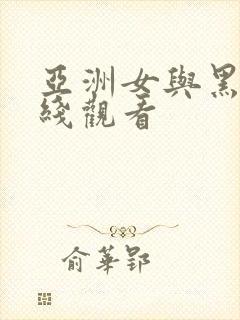 亞洲女與黑
綫觀看
俞華郢